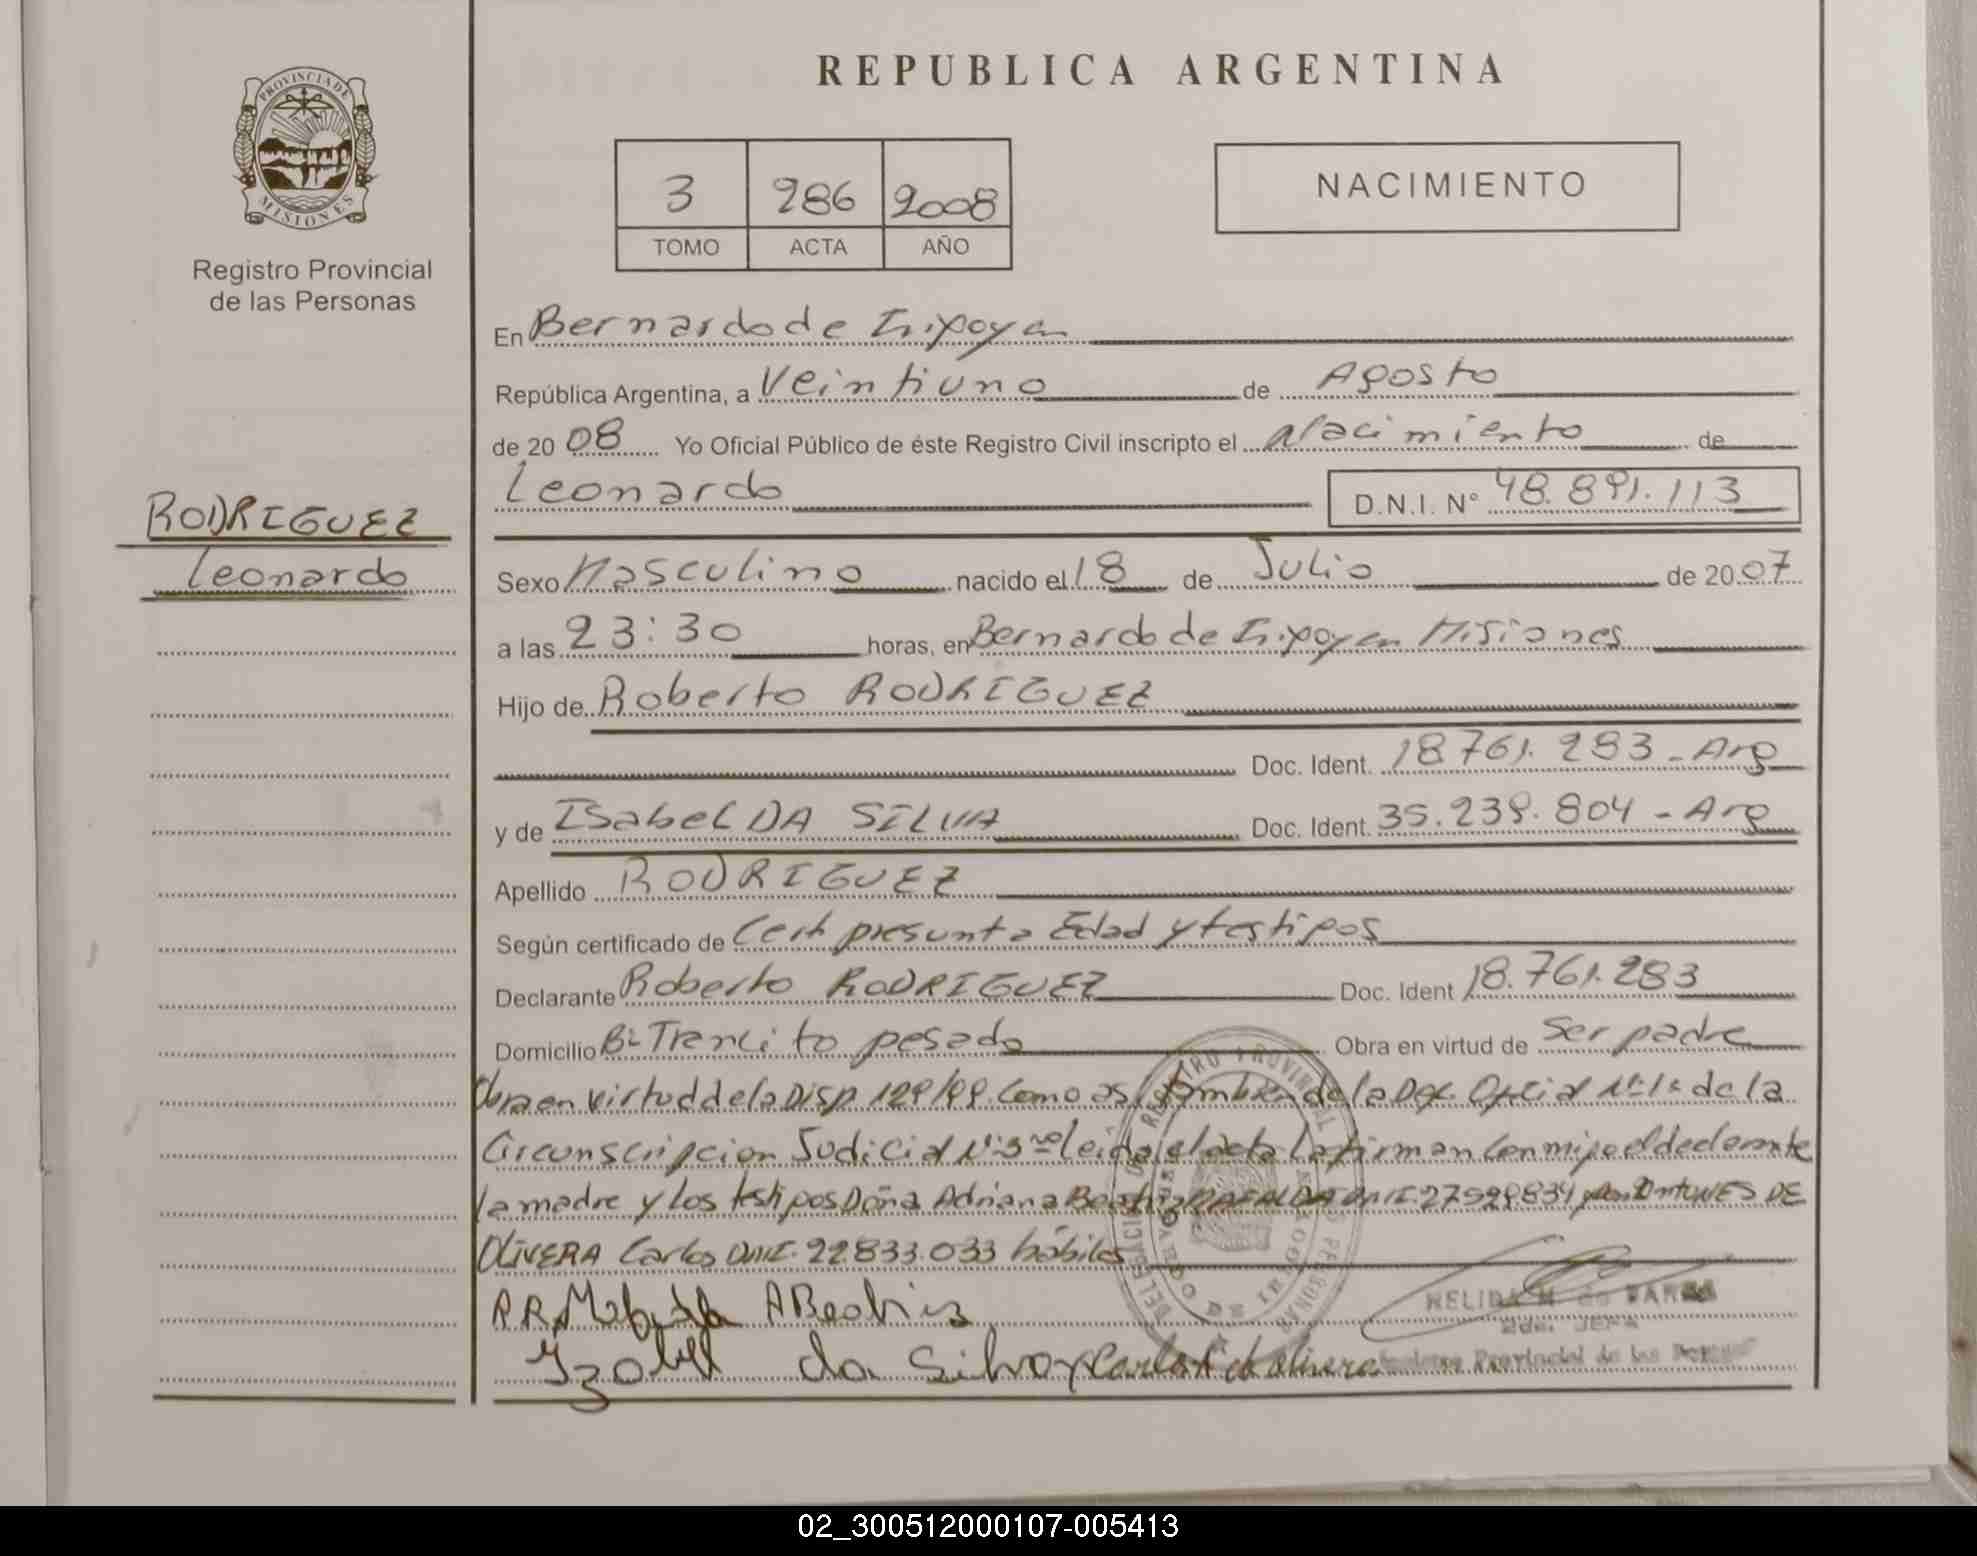 REPUBLICA ARGENTINA
PROVINCIA DE
MISIONES
Registro Provincial
de las Personas
3 286 2008
TOMO ACTA AÑO
NACIMIENTO
En Bernardo de Irigoyen
República Argentina, a Veintiuno de Agosto
de 20 08 Yo Oficial Público de éste Registro Civil inscripto el Nacimiento de
Leonardo D.N.I. N° 48.891.113
RODRIGUEZ
Leonardo
Sexo Masculino nacido el 18 de Julio de 20 07
a las 23:30 horas, en Bernardo de Irigoyen Misiones
Hijo de Roberto RODRIGUEZ
Doc. Ident. 18.761.283 - Arg
y de Isabel DA SILVA Doc. Ident. 35.239.804 - Arg
Apellido RODRIGUEZ
Según certificado de Cert presunta Edad y testigos
Declarante Roberto RODRIGUEZ Doc. Ident 18.761.283
Domicilio Bº Trancito pesado Obra en virtud de Ser padre
Obra en virtud de la Disp 129/99. Como asi tambien de la Def. Oficial Nº 1º de la
Circunscripcion Judicial Nº 3 leida el acta la firman conmigo el declarante
la madre y los testigos Doña Adriana Beatriz DNI 27529834 ANTUNES DE
OLIVERA Carlos DNI. 22.833.033 hábiles
R.R. A Beatriz
NELIDA M. de
2da. JEFA
Izabel da Silva Carlos A de olivera Provincial de las
02_300512000107-005413